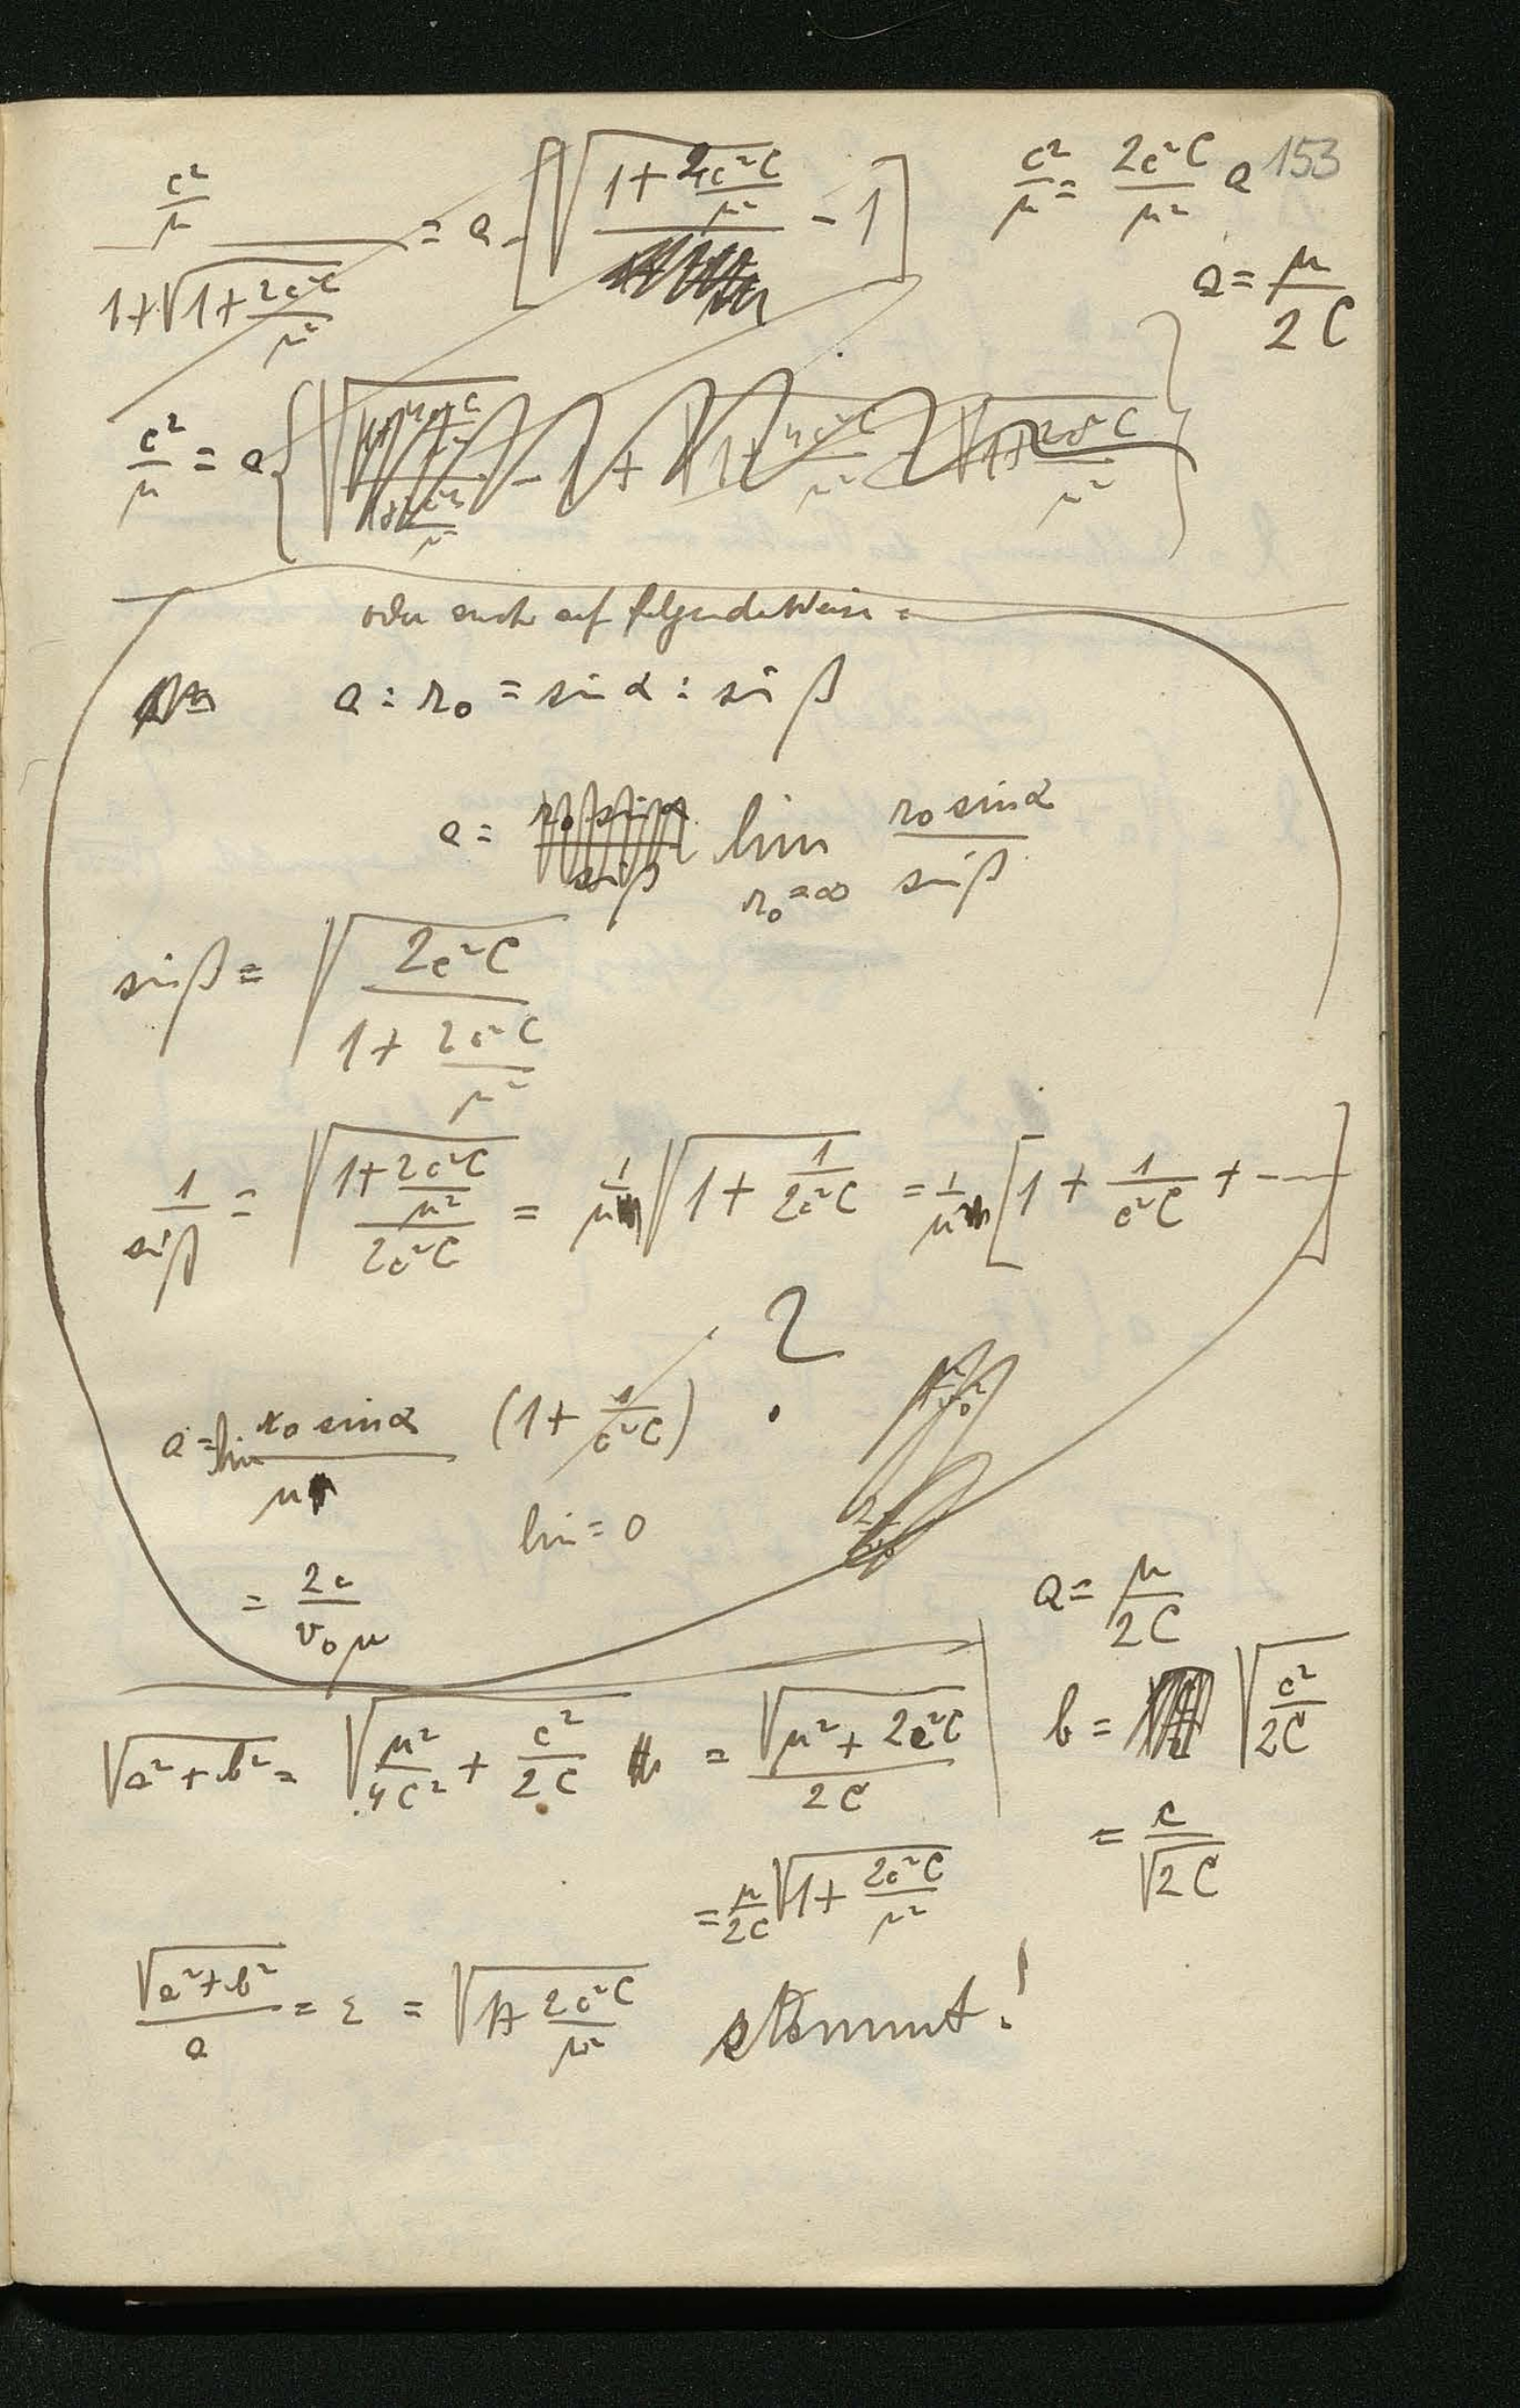 153
c²/μ / (1+√(1+2c²C/μ²)) = a·[√(1+2c²C/μ²) - 1]
c²/μ = 2c²C/μ² a
a = μ/2C
c²/μ = a{
oder auch auf folgende Weise =
a : r₀ = sin α : sin β
a = lim r₀=∞ r₀ sin α / sin β
sin β = √(2c²C / (1 + 2c²C/μ²))
1/sin β = √((1+2c²C/μ²) / 2c²C) = 1/μ √(1 + 1/2c²C) = 1/μ [1 + 1/c²C + ---]
?
a = lim r₀ sin α / μ (1 + 1/c²C)
lim = 0
= 2c / v₀μ
a = μ/2C
√(a² + b²) = √(μ²/4C² + c²/2C) = √(μ² + 2c²C) / 2C
b = √(c²/2C)
= c/√2C
= μ/2C √(1 + 2c²C/μ²)
√(a²+b²) / a = ε = √(1+ 2c²C/μ²) stimmt!